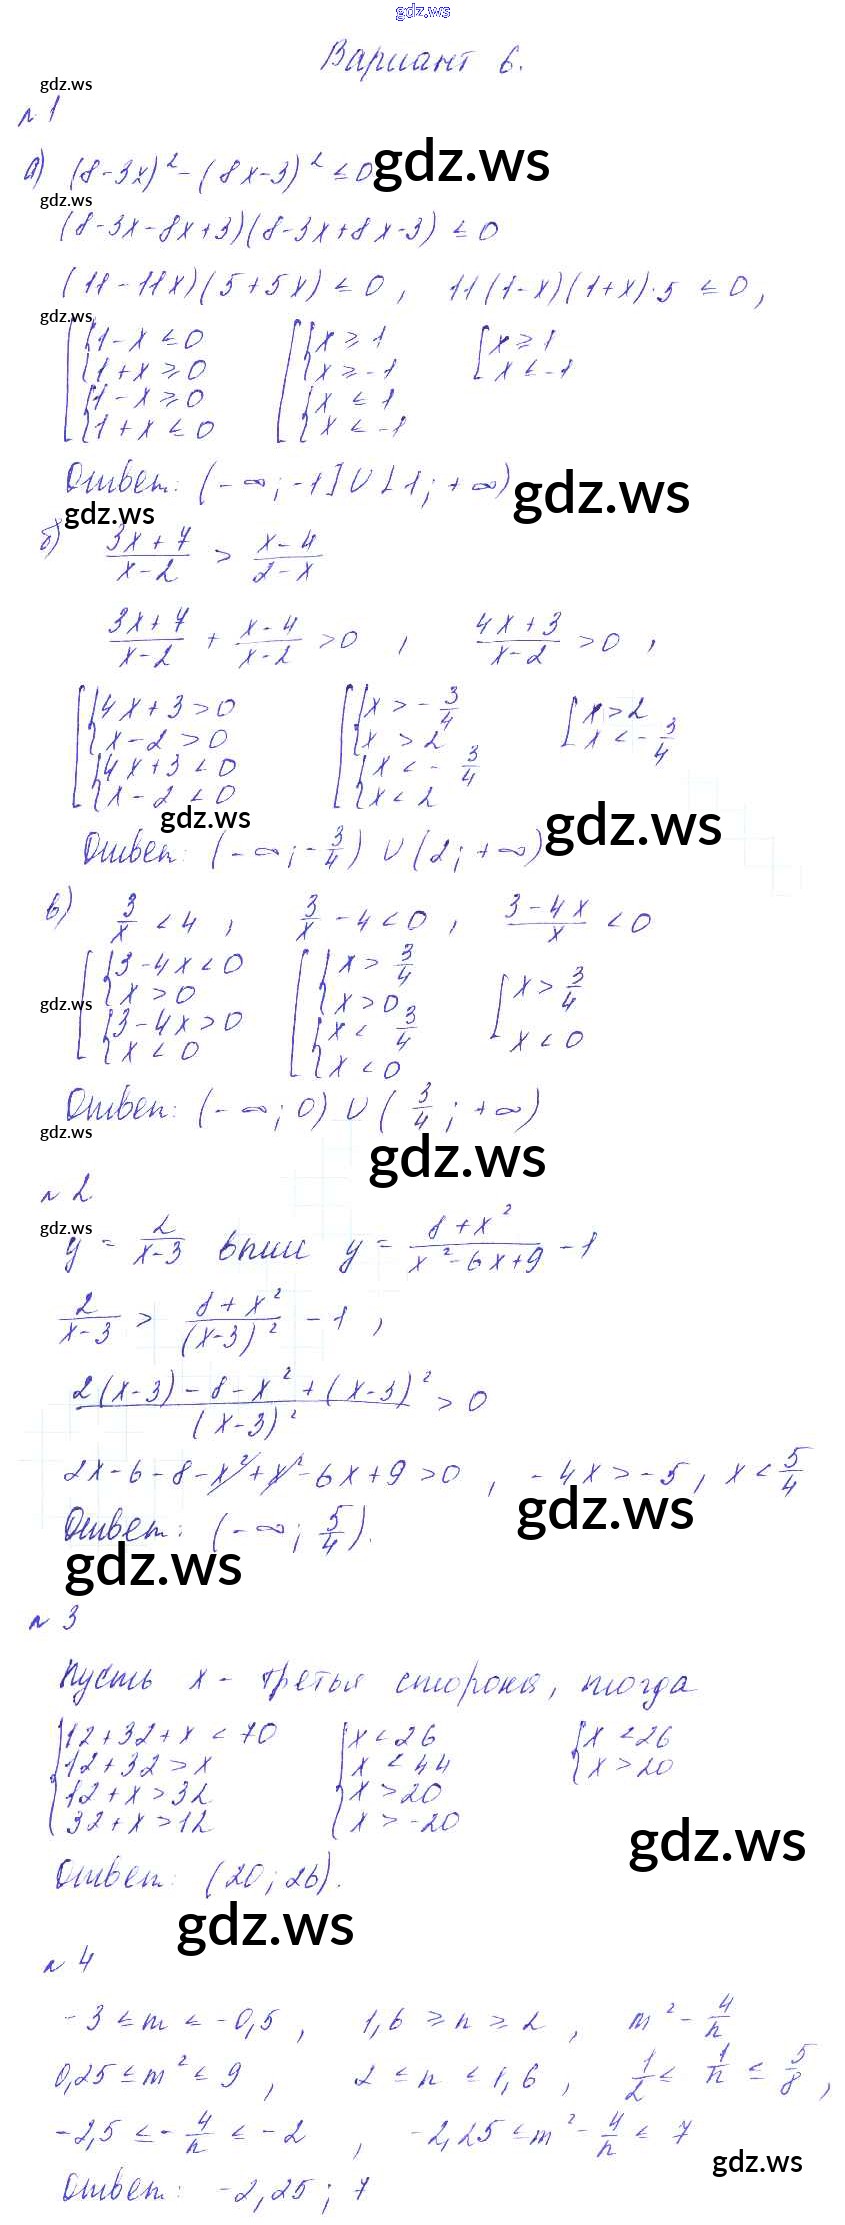 gdz.ws
Вариант 6.
gdz.ws
№ 1
а) (8-3x)² - (8x-3)² ≤ 0 gdz.ws
gdz.ws
(8-3x-8x+3)(8-3x+8x-3) ≤ 0
(11-11x)(5+5x) ≤ 0 , 11(1-x)(1+x)·5 ≤ 0,
gdz.ws
[ { 1-x ≤ 0 [ { x ≥ 1 [ x ≥ 1
1+x ≥ 0 x ≥ -1 x ≤ -1
{ 1-x ≥ 0 { x ≤ 1
1+x ≤ 0 x ≤ -1
Ответ: (-∞; -1] ∪ [1; +∞) gdz.ws
gdz.ws
б) (3x+7)/(x-2) > (x-4)/(2-x)
(3x+7)/(x-2) + (x-4)/(x-2) > 0 , (4x+3)/(x-2) > 0 ,
[ { 4x+3 > 0 [ { x > -3/4 [ x > 2
x-2 > 0 x > 2 x < -3/4
{ 4x+3 < 0 { x < -3/4
x-2 < 0 x < 2
gdz.ws gdz.ws
Ответ: (-∞; -3/4) ∪ (2; +∞)
в) 3/x < 4 , 3/x - 4 < 0 , (3-4x)/x < 0
[ { 3-4x < 0 [ { x > 3/4 [ x > 3/4
x > 0 x > 0 x < 0
gdz.ws
{ 3-4x > 0 { x < 3/4
x < 0 x < 0
Ответ: (-∞; 0) ∪ (3/4; +∞)
gdz.ws gdz.ws
№ 2
gdz.ws
y = 2/(x-3) выше y = (8+x²)/(x²-6x+9) - 1
2/(x-3) > (8+x²)/(x-3)² - 1 ,
(2(x-3) - 8 - x² + (x-3)²)/(x-3)² > 0
2x-6-8-x²+x²-6x+9 > 0 , -4x > -5, x < 5/4
gdz.ws
Ответ: (-∞; 5/4).
gdz.ws
№ 3
Пусть x - третья сторона, тогда
{ 12+32+x < 70 { x < 26 { x < 26
12+32 > x x < 44 x > 20
12+x > 32 x > 20
32+x > 12 x > -20
gdz.ws
Ответ: (20; 26).
gdz.ws
№ 4
-3 ≤ m ≤ -0,5 , 1,6 ≥ n ≥ 2 , m² - 4/n
0,25 ≤ m² ≤ 9 , 2 ≤ n ≤ 1,6 , 1/2 ≤ 1/n ≤ 5/8 ,
-2,5 ≤ -4/n ≤ -2 , -2,25 ≤ m² - 4/n ≤ 7
gdz.ws
Ответ: -2,25 ; 7